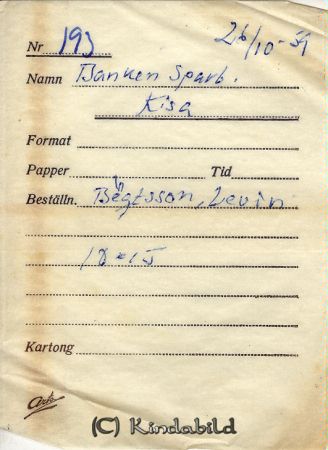 Nr 193 26/10-59
Namn Banken Sparb.
Kisa
Format
Papper Tid
Beställn. Bengtsson, Levin
18×15
Kartong
Arte
(C) Kindabild